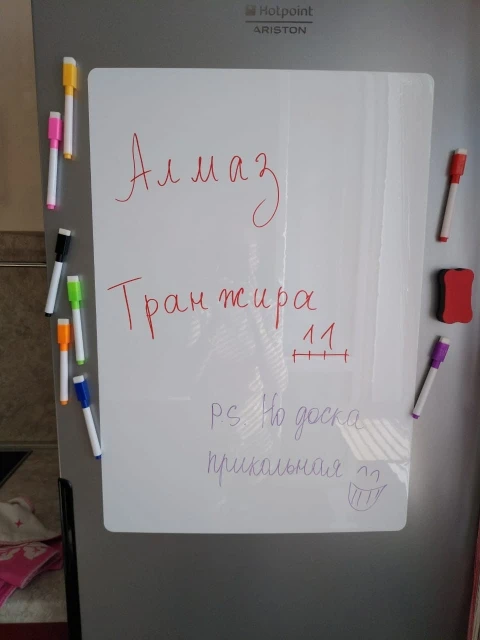 Hotpoint
ARISTON
Алмаз
Транжира
P.S. Но доска
прикольная